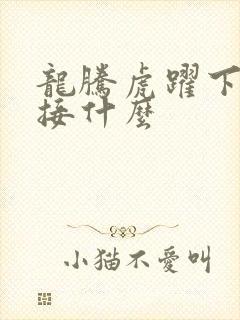 龍騰虎躍下
接什麼
小猫不愛叫